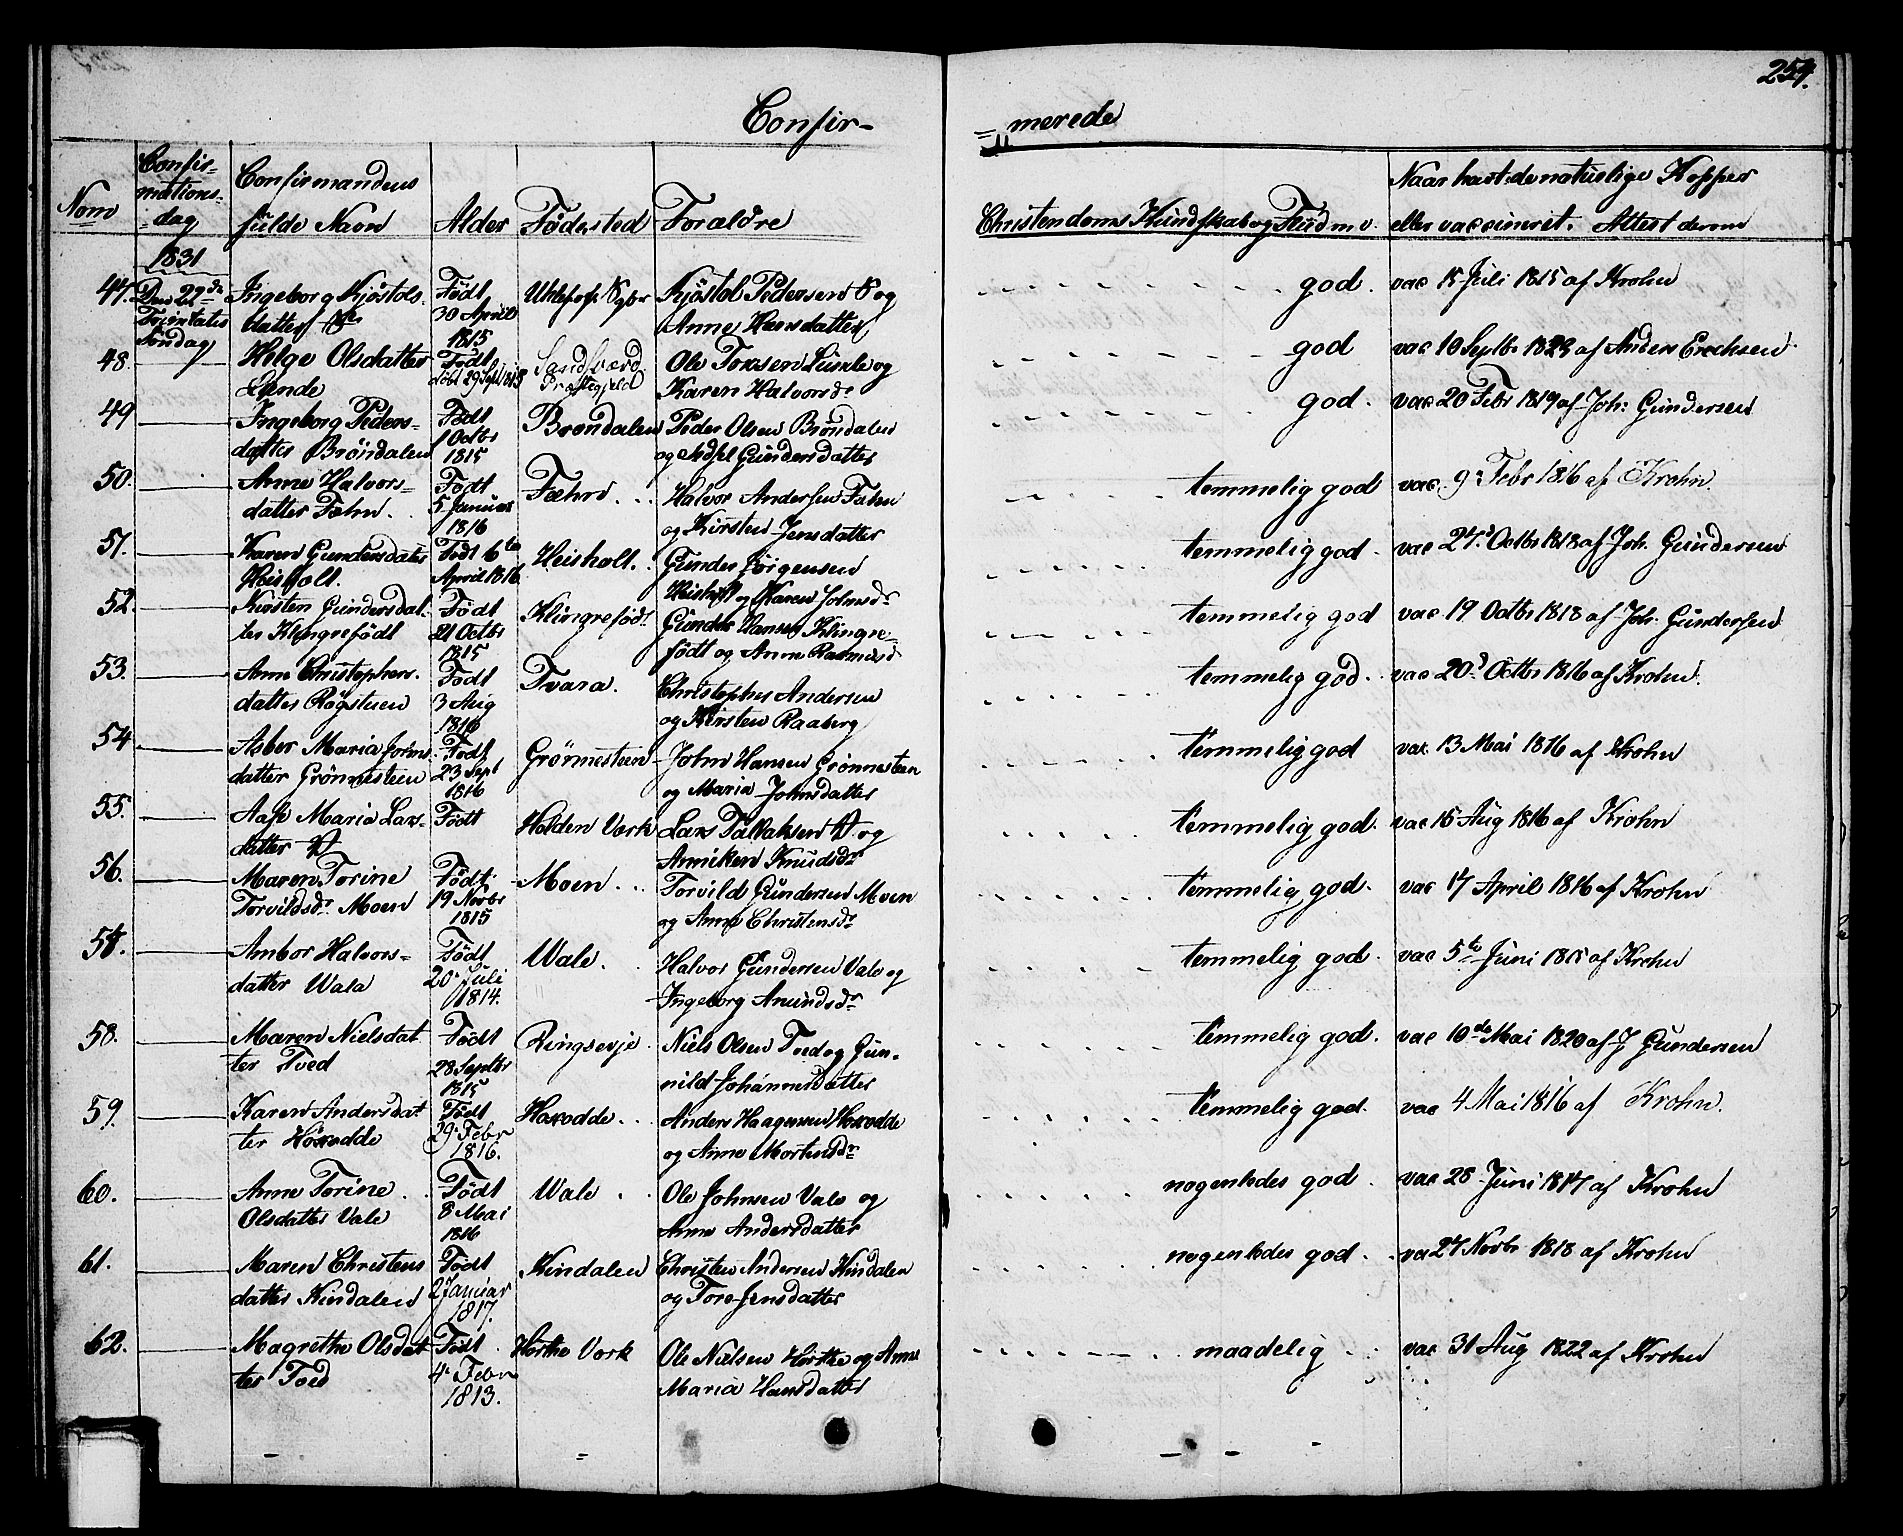 254.
Confir-
= merede
Nom
Confir-
mations-
dag
Confirmandens
fulde Navn
Alder
Fødested
Forældre
Christendoms Kundskab og Flid m. v.
Naar havt de naturlige Kopper
eller vaccineret. Attest derom
1831
47. Den 22de Trinitatis Søndag
Ingeborg Kjøstols-
datter
Født 30 April 1815
Kjøstol Pedersen og
Anne Hansdatter
god. vac 15 Juli 1815 af Krohn
48. Helge Olsdatter
Lunde
Født døbt 29 Sept 1815
Sandsværd Præstegjeld
Ole Torsen Lunde og
Karen Halvorsdr
god vac 10 Septbr 1823 af Anders Erichsen
49 Ingeborg Peders-
datter Brøndalen
Født 1 Octbr 1815
Brøndalen
Peder Olsen Brøndalen
og Gundersdatter
god. vac 20 Febr 1819 af Joh: Gundersen
50. Anne Halvors-
datter Fæhn.
Født 5 Januar 1816
Fæhn
Halvor Andersen Fæhn
og Kirsten Jensdatter
temmelig god vac. 9 Febr 1816 af Krohn.
51. Karen Gundersdatter
Heisholt.
Født 6te April 1816
Heisholt.
Gunder Jørgensen
Heisholt og Karen Johnsdr
temmelig god. vac 27. Octbr 1818 af Joh. Gundersen
52. Kirsten Gundersdat-
ter Klingrefødt
Født 21 Octbr 1815
Klingrefødt
Gunder Hansen Klingre-
født og Anne Rasmusd
temmelig god vac 19 Octbr 1818 af Joh. Gundersen
53. Anne Christophers-
datter Røgstuen
Født 3 Aug 1816
Tvara.
Christopher Andersen
og Kirsten Raaberg
temmelig god. vac 20 Octbr 1816 af Krohn.
54 Asber Maria Johns-
datter Grönnesteen
Født 23 Sept 1816
Grönnesteen
John Hansen Grönnesteen
og Maria Johnsdatter
temmelig god vac. 13 Mai 1816 af Krohn
55. Aase Maria Lars-
datter
Født
Holden Værk
Lars Talläksen og
Anniken Knudsdr
temmelig god. vac 15 Aug 1816 af Krohn
56. Maren Torine
Torvildsdr Moen
Født 19 Novbr 1815
Moen
Torvild Gundersen Moen
og Anne Christensdr
temmelig god. vac 17 April 1816 af Krohn
57. Ambor Halvors-
datter Wala
Født 20 Juli 1814.
Wale.
Halvor Gundersen Vale og
Ingeborg Amundsdr
temmelig god. vac 5te Juni 1815 af Krohn
58. Maren Nielsdat-
ter Tved
Født 28 Septbr 1815
Ringsevje
Niels Olsen Tved og Gun-
nild Johannesdatter
temmelig god. vac 10de Mai 1820 af J Gundersen
59. Karen Andersdat-
ter Höxodde
Født 29 Febr 1816.
Hoxodde
Anders Haagensen Hoxodde
og Anne Mortensdr
temmelig god. vac 4 Mai 1816 af Krohn.
60. Anne Torine
Olsdatter Vale
Født 8 Mai 1816
Wale
Ole Johnsen Vale og
Anne Andersdatter
nogenledes god. vac 28 Juni 1817 af Krohn
61. Maren Christens
datter Kindalen
Født 2 Januar 1817.
Kindalen
Christen Andersen Kindalen
og Tore Jensdatter
nogenledes god. vac 27 Novbr 1818 af Krohn
62. Magrethe Olsdat-
ter Tved
Født 4. Febr 1813.
Hørthe Værk
Ole Nielsen Hørthe og Anne
Maria Hansdatter
maadelig vac 31 Aug 1822 af Krohn